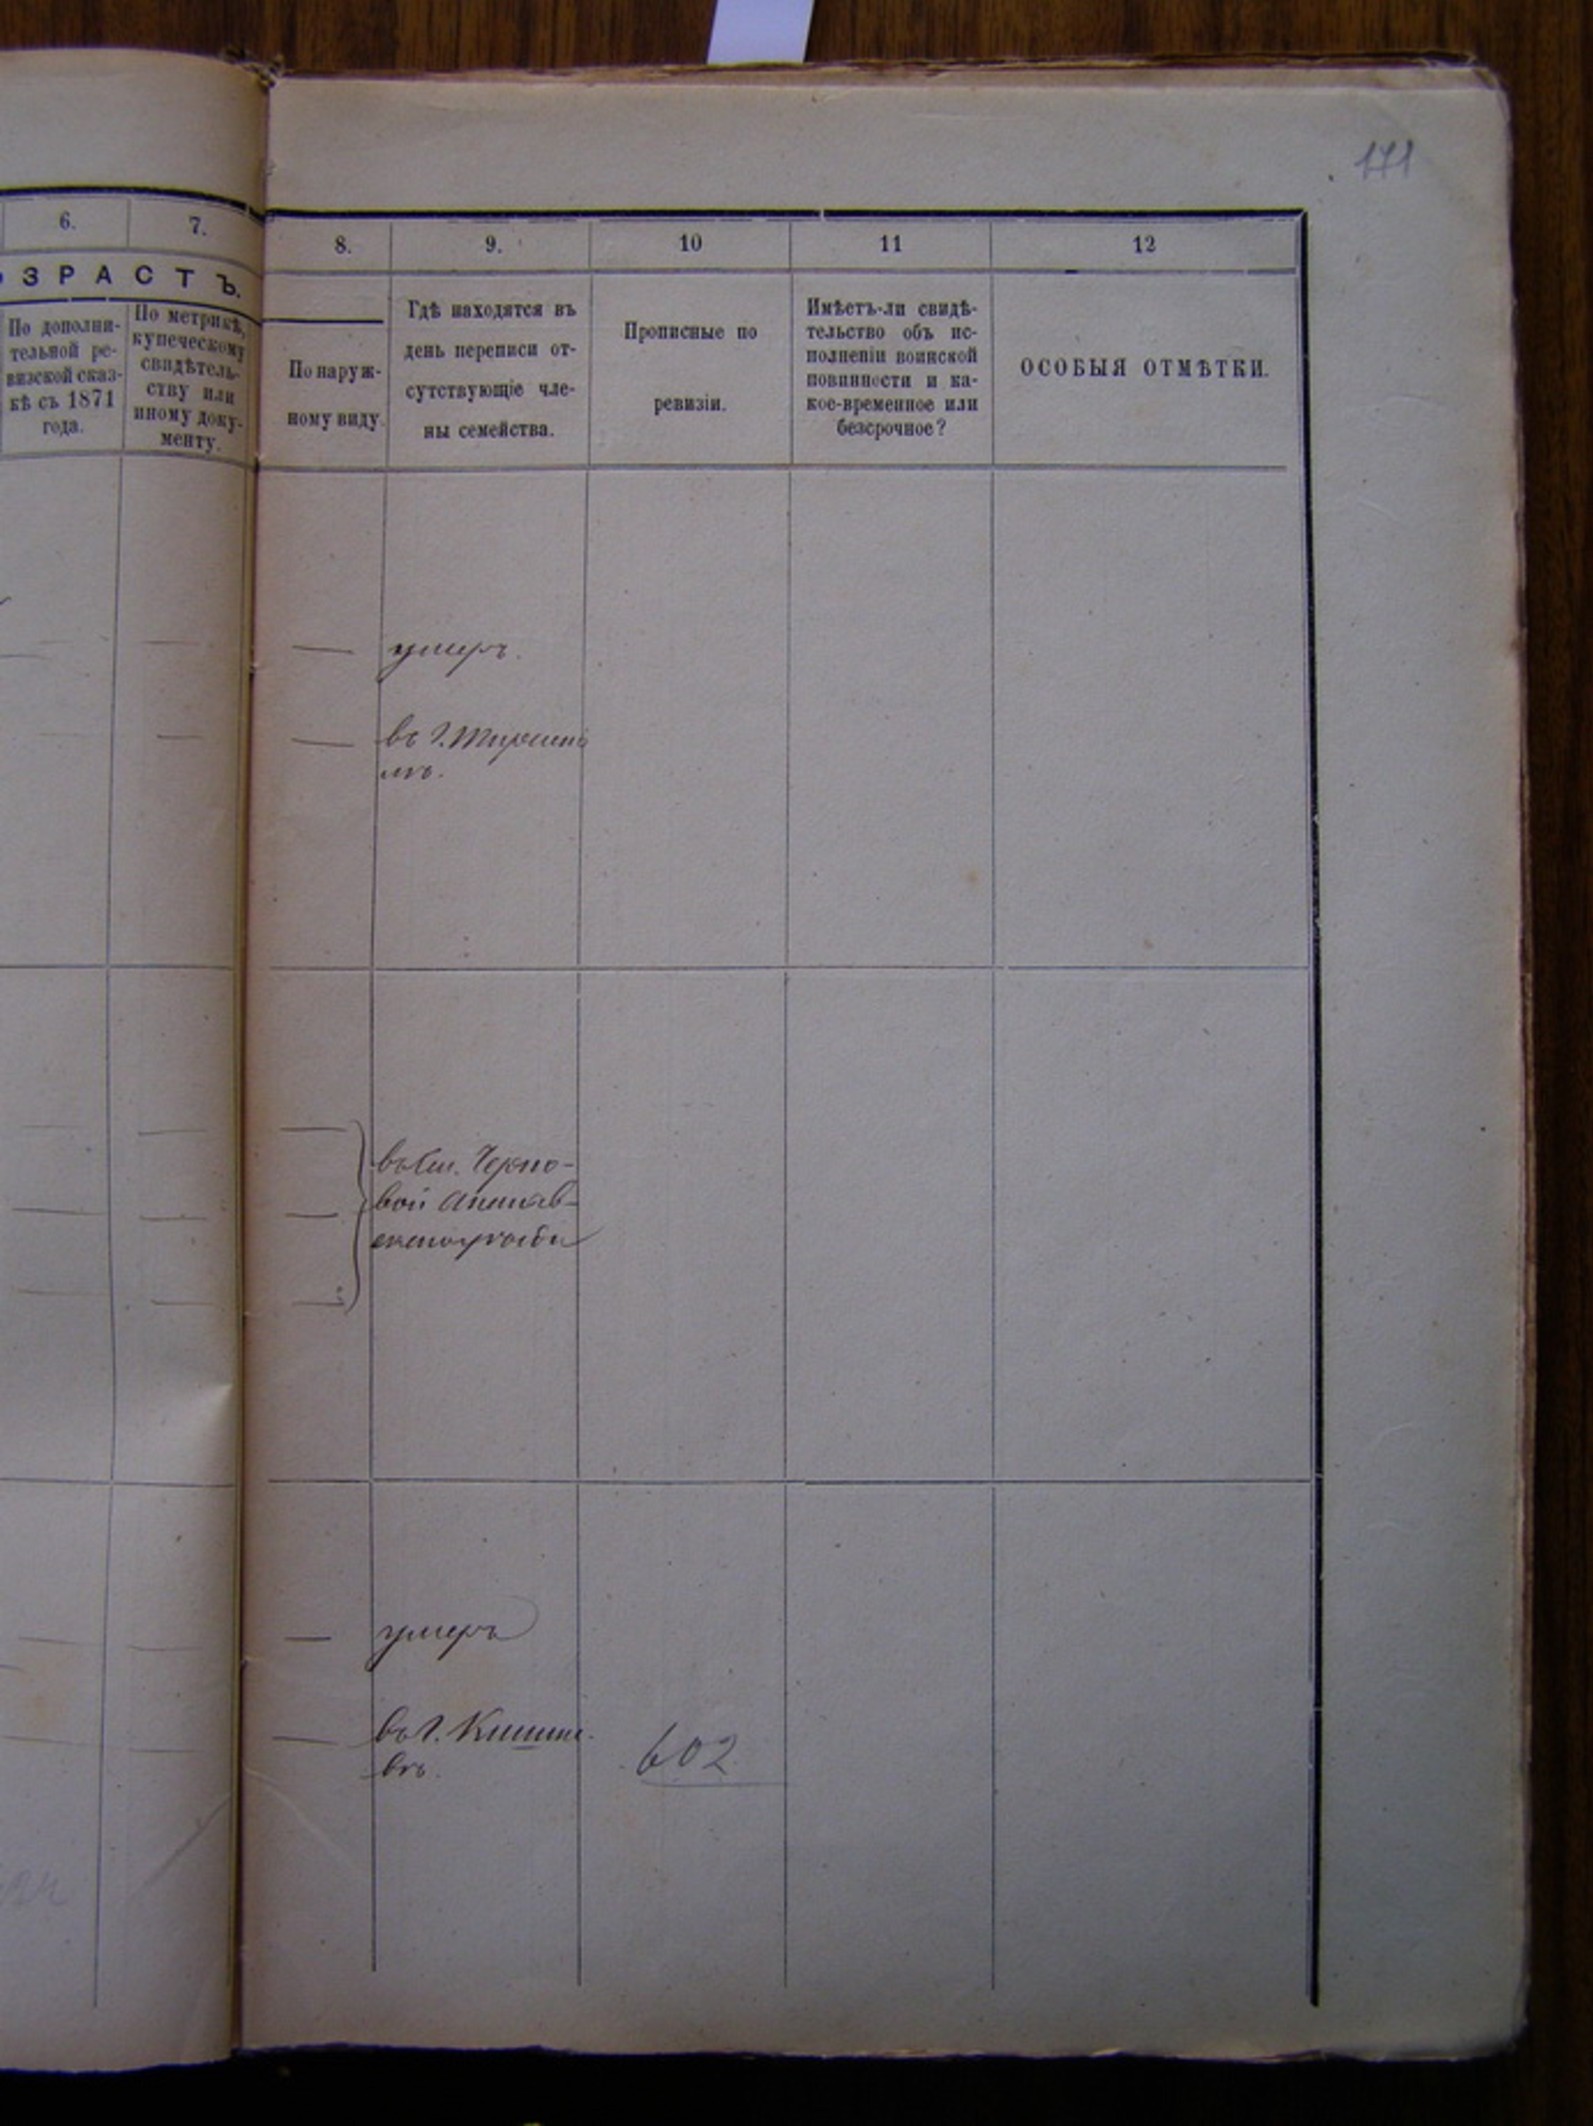 171
6.
7.
8.
9.
10
11
12
ЗРАСТЪ.
По дополни-
тельной ре-
визской сказ-
кѣ съ 1871
года.
По метрикѣ,
купеческому
свидѣтель-
ству или
иному доку-
менту.
По наруж-
ному виду.
Гдѣ находятся въ
день переписи от-
сутствующіе чле-
ны семейства.
Прописные по
ревизіи.
Имѣетъ-ли свидѣ-
тельство объ ис-
полненіи воинской
повинности и ка-
кое-временное или
безсрочное?
ОСОБЫЯ ОТМѢТКИ.
умеръ.
въ г. Тираспо
лѣ.
вой Ананьев-
умеръ
въ г. Кишине-
вѣ.
602